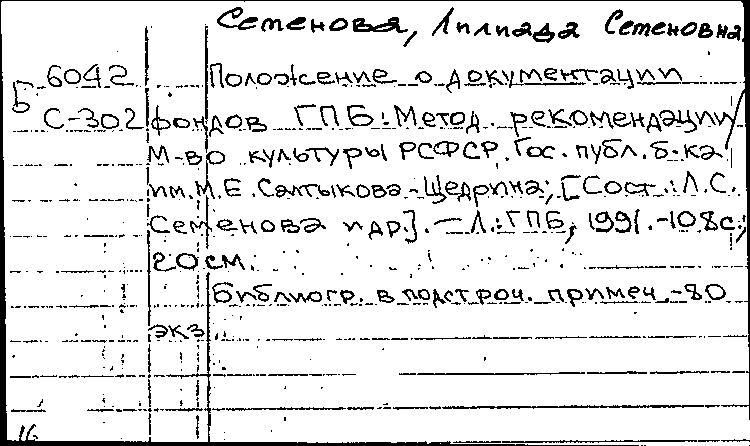 Семенова, Лилиада Семеновна.
Б 6042 Положение о документации
С-302 фондов ГПБ: Метод. рекомендации/
М-во культуры РСФСР. Гос. публ. б-ка
им. М. Е. Салтыкова-Щедрина; [Сост.: Л. С.
Семенова и др.]. — Л.: ГПБ, 1991. -108 с.;
20 см.
Библиогр. в подстроч. примеч. -80
экз.
16